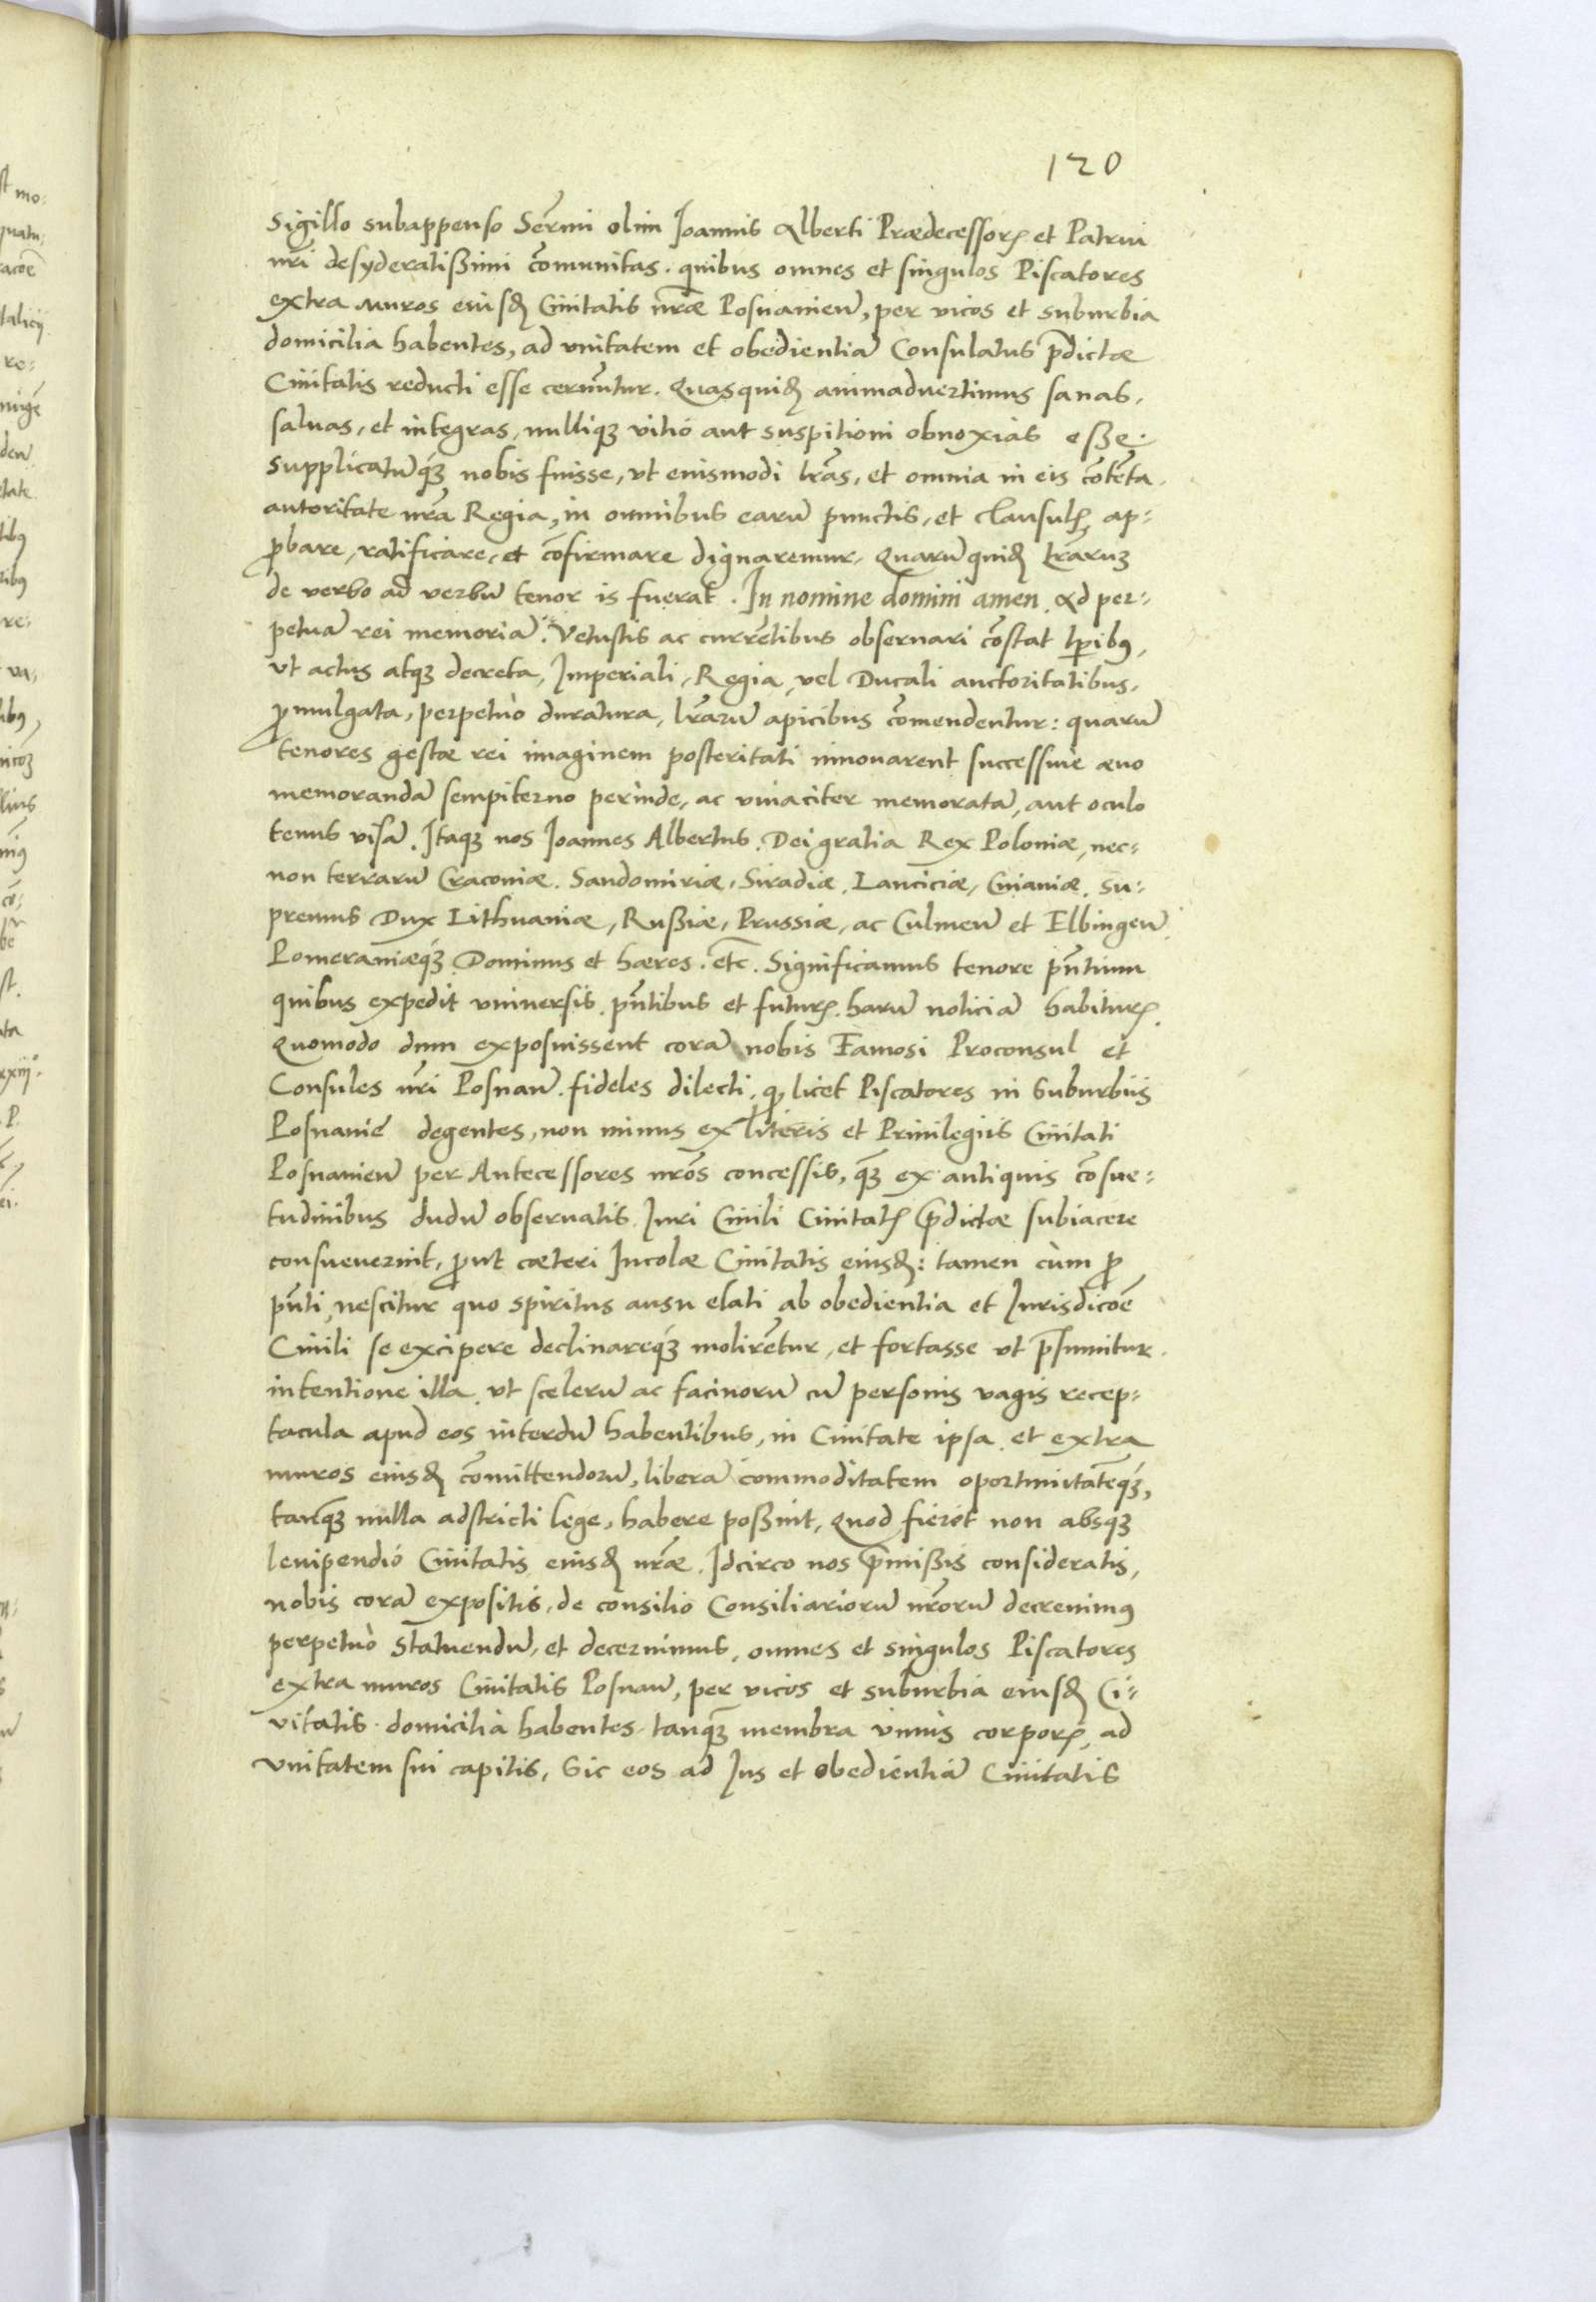 120
Sigillo subappenso Sermi olim Joannis Alberti Prædecessorꝭ et Patrui
nri desyderatißimi cōmunitas. quibus omnes et singulos Piscatores
extra muros eiusd Ciuitatis nræ Posnanien, per vicos et suburbia
domicilia habentes, ad vnitatem et obedientiā Consulatus p̄dictæ
Ciuitatis reducti esse cernūtur. Quasquid animaduertimus sanas,
saluas, et integras, nulliqꝫ vitio aut suspitioni obnoxias eße.
Supplicatūqꝫ nobis fuisse, vt eiusmodi lras, et omnia in eis cōtēta,
autoritate nra Regia, in omnibus earū punctis, et clausulꝭ, ap-
ꝓbare, ratificare, et cōfirmare dignaremur. Quarūquid lrarum
de verbo ad verbū tenor is fuerat. In nomine domini amen. Ad per-
petuā rei memoriā. Vetustis ac currētibus obseruari cōstat tpibꝰ,
vt actus atqꝫ decreta, Imperiali, Regia, vel Ducali auctoritatibus,
ꝓmulgata, perpetuò duratura, lrarū apicibus cōmendentur: quarū
tenores gestæ rei imaginem posteritati innouarent successiuè æuo
memorandā sempiterno perinde, ac viuaciter memoratā, aut oculo
tenus visā. Itaqꝫ nos Joannes Albertus. Dei gratia Rex Poloniæ, nec-
non terrarū Cracouiæ. Sandomiriæ, Siradiæ, Lanciciæ, Cuiauiæ, su-
premus Dux Lithuaniæ, Rußiæ, Prussiæ, ac Culmen et Elbingen
Pomeraniæqꝫ Dominus et hæres. etc. Significamus tenore pntium
quibus expedit vniuersis, pntibus et futurꝭ, harū noticiā habiturꝭ.
Quomodo dum exposuissent corā nobis Famosi Proconsul et
Consules nri Posnan. fideles dilecti, ꝙ licet Piscatores in Suburbijs
Posnanie degentes, non minus ex literis et Priuilegijs Ciuitati
Posnanien per Antecessores nros concessis, qꝫ ex antiquis cōsue-
tudinibus dudū obseruatis, Iuri Ciuili Ciuitatꝭ p̄dictæ subiacere
consueuerint, ꝓut cæteri Incolæ Ciuitatis eiusd: tamen cùm ꝓ
pnti, nescitur quo spiritus ausu elati ab obedientia et Iurisdicōe
Ciuili se excipere declinareqꝫ molirētur, et fortasse vt p̄sumitur
intentione illa, vt scelerū ac facinorū cū personis vagis recep-
tacula apud eos interdū habentibus, in Ciuitate ipsa et extra
muros eiusd cōmittendorū, liberā commoditatem oportunitatēqꝫ,
tanqꝫ nulla adstricti lege, habere poßint, Quod fieret non absqꝫ
leuipendio Ciuitatis eiusd nræ. Idcirco nos p̄mißis consideratis,
nobis corā expositis, de consilio Consiliariorū nrorū decreuimꝰ
perpetuò statuendū, et decernimus, omnes et singulos Piscatores
extra muros Ciuitatis Posnan, per vicos et suburbia eiusd Ci-
vitatis domicilia habentes, tanqꝫ membra vnius corporꝭ, ad
vnitatem sui capitis, Sic eos ad Ius et obedientiā Ciuitatis